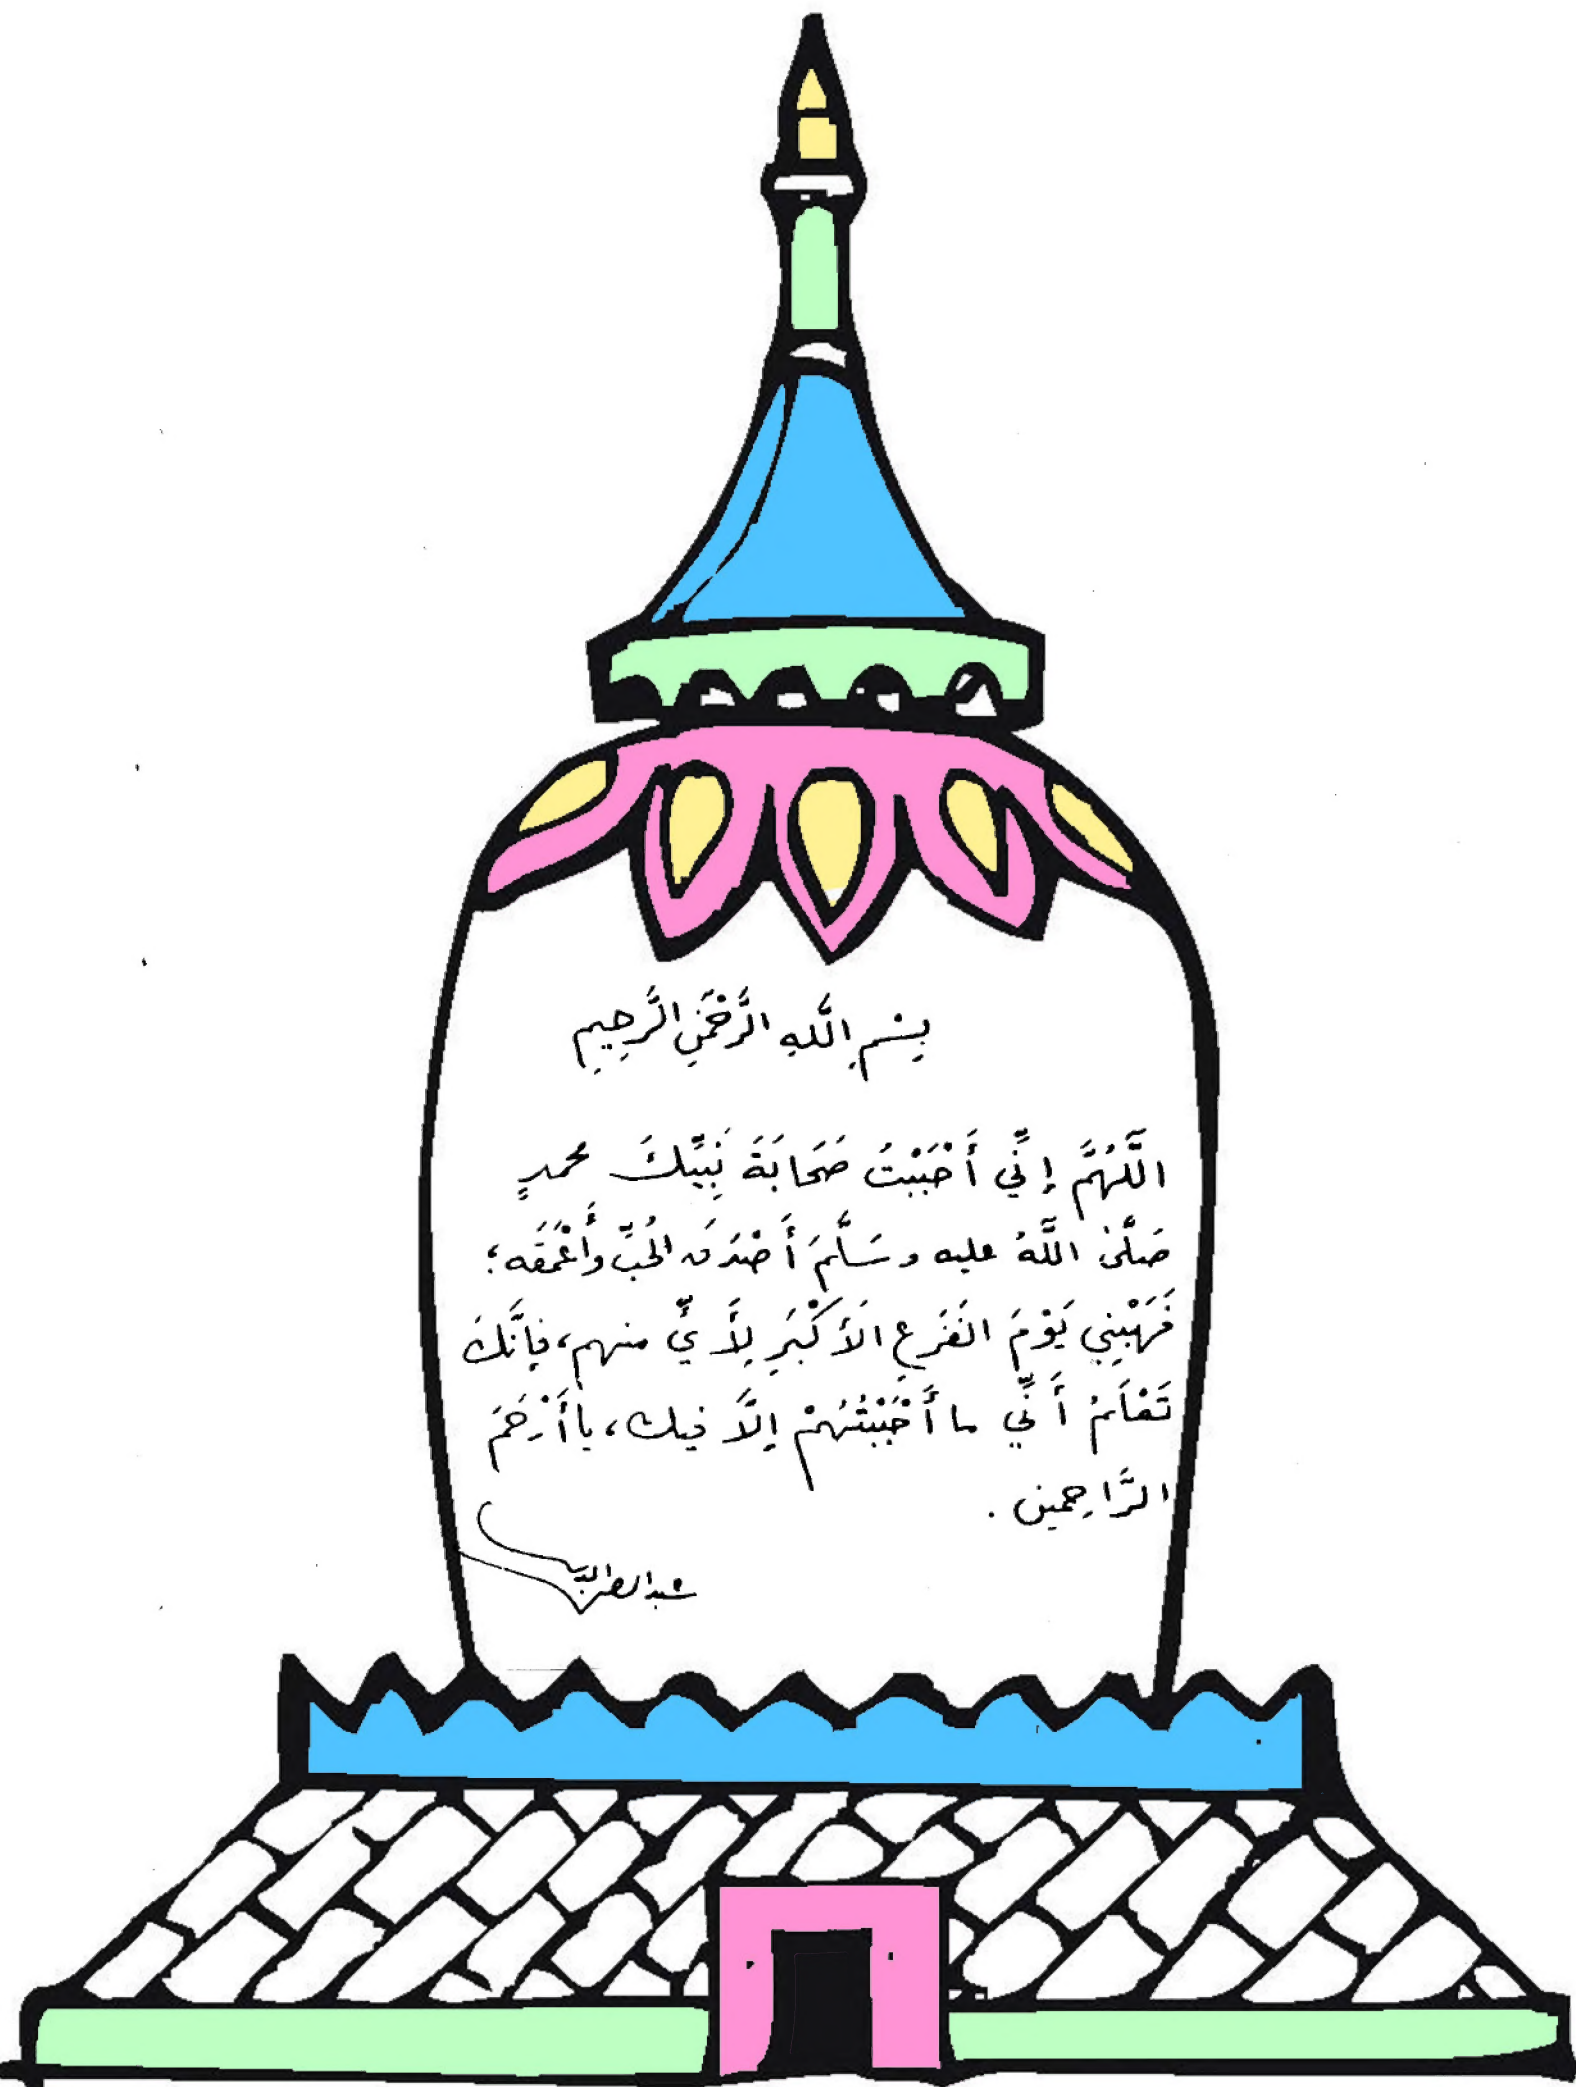 بِسْمِ اللَّهِ الرَّحْمَنِ الرَّحِيمِ
اللَّهُمَّ إِنِّي أَحْبَبْتُ صَحَابَةَ نَبِيِّكَ محمدٍ
صَلَّى اللَّهُ عليه وسَلَّمَ أَصْدَقَ الحُبِّ وأَعْمَقَه؛
فَهَبْنِي يَوْمَ الفَزَعِ الأَكْبَرِ لِأَيٍّ منهم، فإنَّكَ
تَعْلَمُ أَنِّي ما أَحْبَبْتُهُمْ إلَّا فيك، يا أَرْحَمَ
الرَّاحِمين .